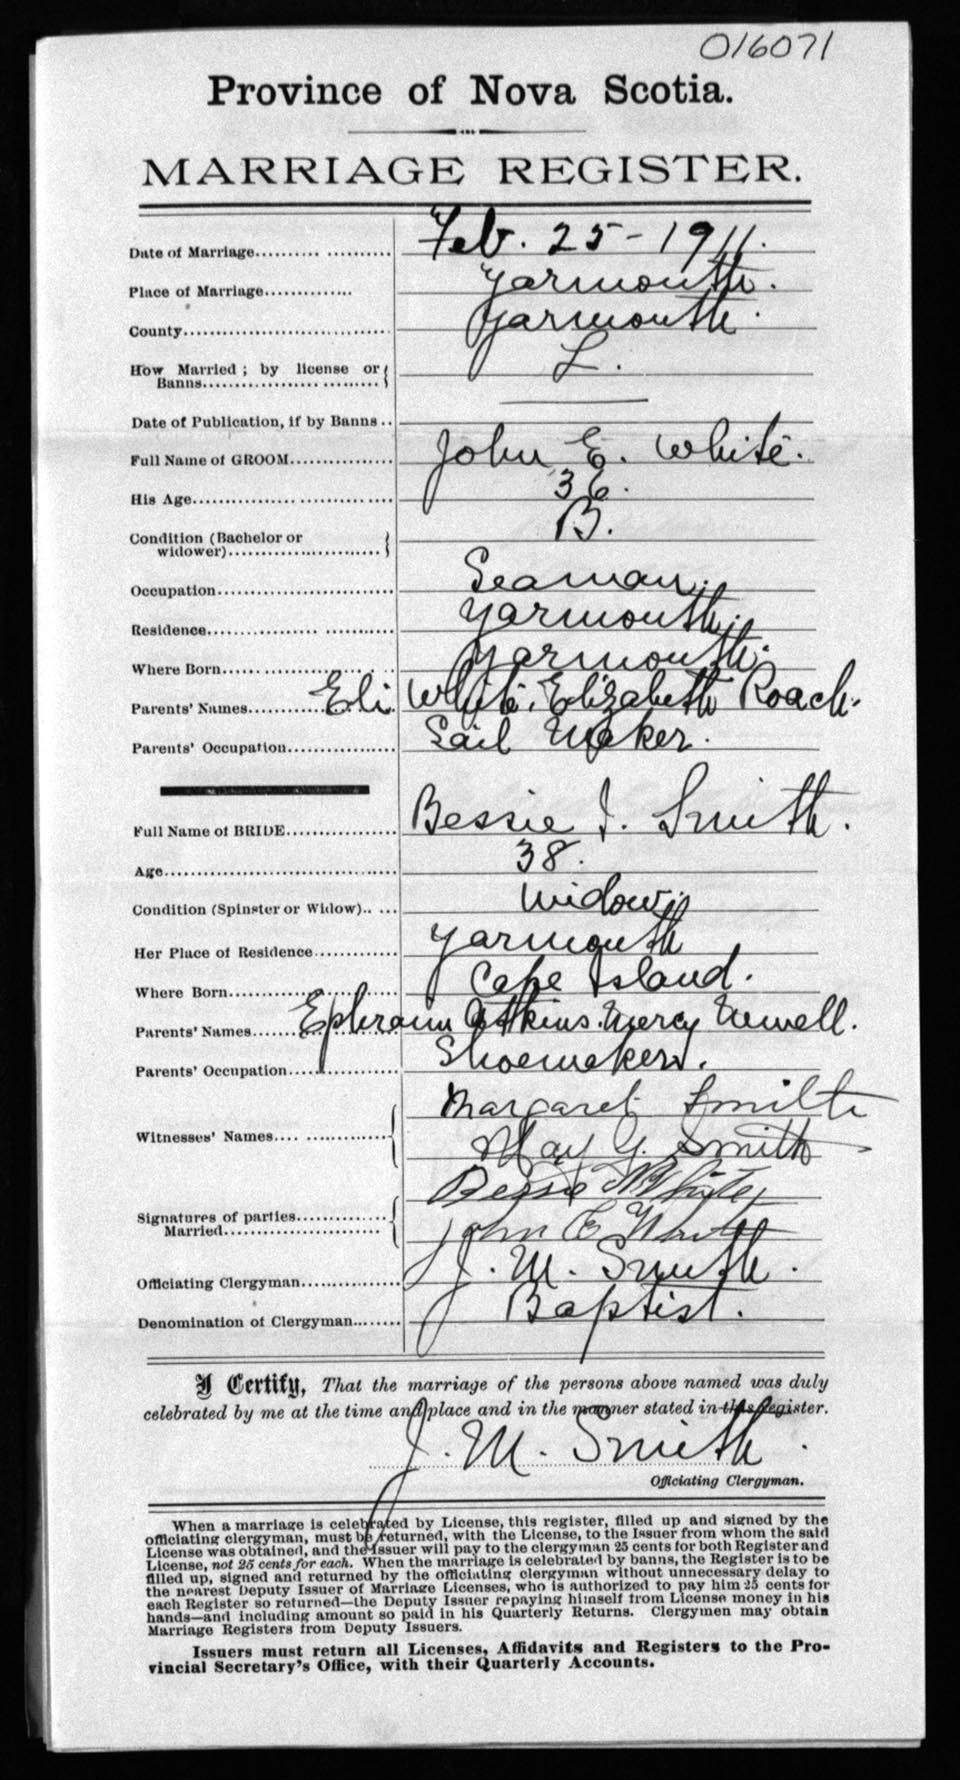 016071
Province of Nova Scotia.
MARRIAGE REGISTER.
Date of Marriage.......... ........... Feb. 25 - 1911.
Place of Marriage.............. Yarmouth.
County................................ Yarmouth.
How Married ; by license or
Banns.................. .......... L.
Date of Publication, if by Banns .. ——
Full Name of GROOM................ John E. White.
His Age.................... .......... 36.
Condition (Bachelor or
widower)........................ B.
Occupation........................... Seaman.
Residence................ ........... Yarmouth.
Where Born......... ........... Yarmouth.
Parents' Names............. Eli White. Elizabeth Roach.
Parents' Occupation................. Sail Maker.
Full Name of BRIDE................. Bessie J. Smith.
Age.................................... 38.
Condition (Spinster or Widow).. ... Widow.
Her Place of Residence............. Yarmouth
Where Born......................... Cape Island.
Parents' Names....... Ephraim Atkins. Mercy Newell.
Parents' Occupation................ Shoemaker.
Margaret Smith
Witnesses' Names.... .............
May G. Smith
Bessie White
Signatures of parties..............
Married........................ John E White
Officiating Clergyman............... J. M. Smith.
Denomination of Clergyman........ Baptist.
I Certify, That the marriage of the persons above named was duly
celebrated by me at the time and place and in the manner stated in this Register.
J. M. Smith.
Officiating Clergyman.
When a marriage is celebrated by License, this register, filled up and signed by the
officiating clergyman, must be returned, with the License, to the Issuer from whom the said
License was obtained, and the Issuer will pay to the clergyman 25 cents for both Register and
License, not 25 cents for each. When the marriage is celebrated by banns, the Register is to be
filled up, signed and returned by the officiating clergyman without unnecessary delay to
the nearest Deputy Issuer of Marriage Licenses, who is authorized to pay him 25 cents for
each Register so returned—the Deputy Issuer repaying himself from License money in his
hands—and including amount so paid in his Quarterly Returns. Clergymen may obtain
Marriage Registers from Deputy Issuers.
Issuers must return all Licenses, Affidavits and Registers to the Pro-
vincial Secretary's Office, with their Quarterly Accounts.